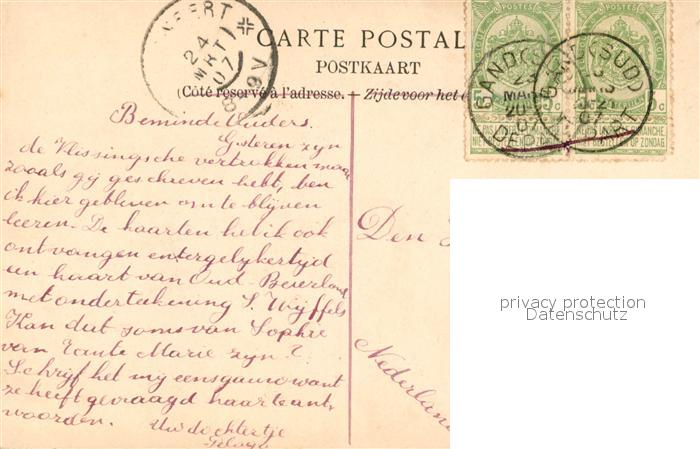 CARTE POSTAL
POSTKAART
(Côté réservé à l'adresse. – Zijde voor het
WEERT
24
MRT
07
8-9V
POSTES
POSTES
GAND (SUD)
MARS
20
07
DEPART
GAND (SUD)
MARS
07
DEPART
5 c
Beminde Ouders.
Gisteren zyn
de Vlissingsche vertrokken maar
zooals gij geschreven hebt, ben
ik hier gebleven om te blyven
leeren. De kaarten heb ik ook
ontvangen en tergelykertyd
een kaart van Oud-Beierland
met ondertekening S. Wyffels
Kan dat soms van Sophie
van Tante Marie zyn?
Schryf het my eens gauw want
ze heeft gevraagd haar te ant
woorden.
Uw dochtertje
Den
Nederland
privacy protection
Datenschutz